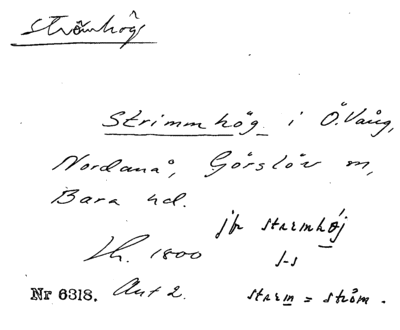 Strömhög
Strimmhög i Ö. Vång,
Nordanå, Görslöv sn,
Bara hd.
jfr starmhøj
Lh. 1800 s-s
Nr 6318. Akt 2. starm = ström.